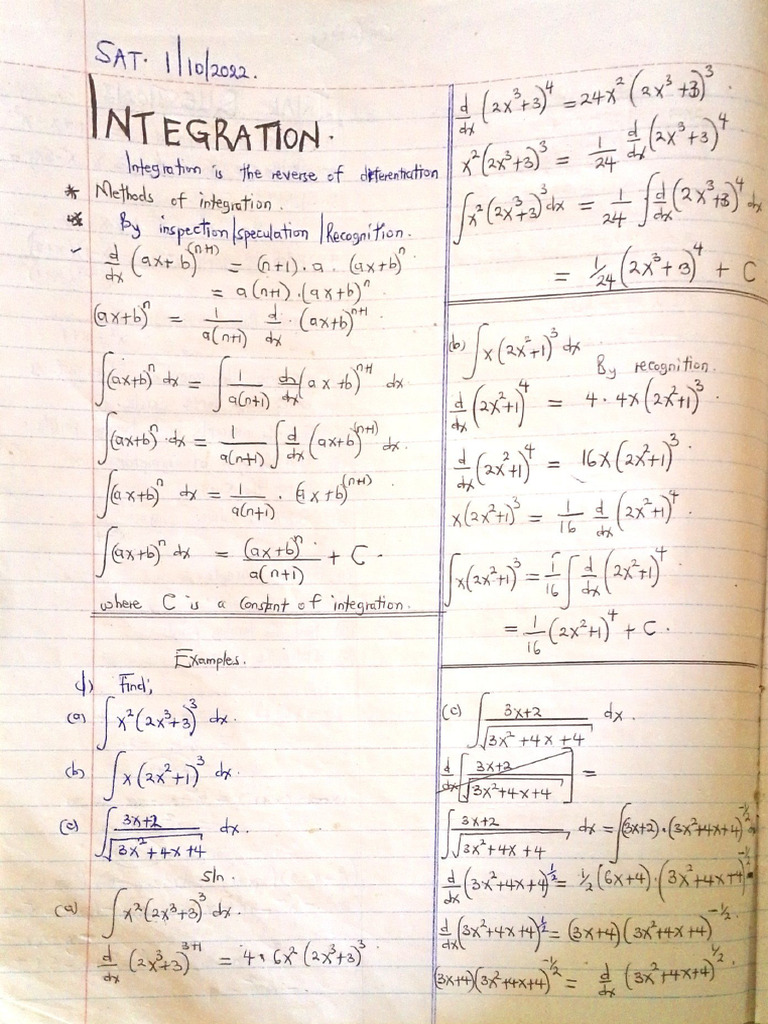 SAT. 1/10/2022.
INTEGRATION.
Integration is the reverse of differentiation
* Methods of integration.
By inspection/speculation/Recognition.
✓ d/dx (ax+b)^(n+1) = (n+1).a.(ax+b)^n
= a(n+1).(ax+b)^n
(ax+b)^n = 1/a(n+1) d/dx.(ax+b)^n+1
∫(ax+b)^n dx = ∫ 1/a(n+1) d/dx (ax+b)^n+1 dx
∫(ax+b)^n.dx = 1/a(n+1) ∫ d/dx (ax+b)^(n+1) dx.
∫(ax+b)^n dx = 1/a(n+1) . (ax+b)^(n+1)
∫(ax+b)^n dx = (ax+b)^n/a(n+1) + C.
where C is a constant of integration.
Examples.
1) Find;
(a) ∫x²(2x³+3)³ dx.
(b) ∫x(2x²+1)³ dx.
(c) ∫ 3x+2/√3x²+4x+4 dx.
Sln.
(a) ∫x²(2x³+3)³ dx.
d/dx (2x³+3)^3+1 = 4.6x²(2x³+3)³
d/dx (2x³+3)⁴ = 24x²(2x³+3)³.
x²(2x³+3)³ = 1/24 d/dx (2x³+3)⁴
∫x²(2x³+3)³dx = 1/24 ∫ d/dx (2x³+3)⁴ dx
= 1/24 (2x³+3)⁴ + C
(b) ∫x(2x²+1)³ dx
By recognition.
d/dx (2x²+1)⁴ = 4.4x(2x²+1)³.
d/dx (2x²+1)⁴ = 16x(2x²+1)³
x(2x²+1)³ = 1/16 d/dx (2x²+1)⁴
∫x(2x²+1)³ = 1/16 ∫ d/dx (2x²+1)⁴
= 1/16 (2x²+1)⁴ + C.
(c) ∫ 3x+2/√3x²+4x+4 dx.
d/dx [3x+2/√3x²+4x+4] =
∫ 3x+2/√3x²+4x+4, dx = ∫(3x+2).(3x²+4x+4)^-1/2
d/dx (3x²+4x+4)^1/2 = 1/2 (6x+4).(3x²+4x+4)^-1/2
d/dx (3x²+4x+4)^1/2 = (3x+4)(3x²+4x+4)^-1/2.
(3x+4)(3x²+4x+4)^-1/2 = d/dx (3x²+4x+4)^1/2.